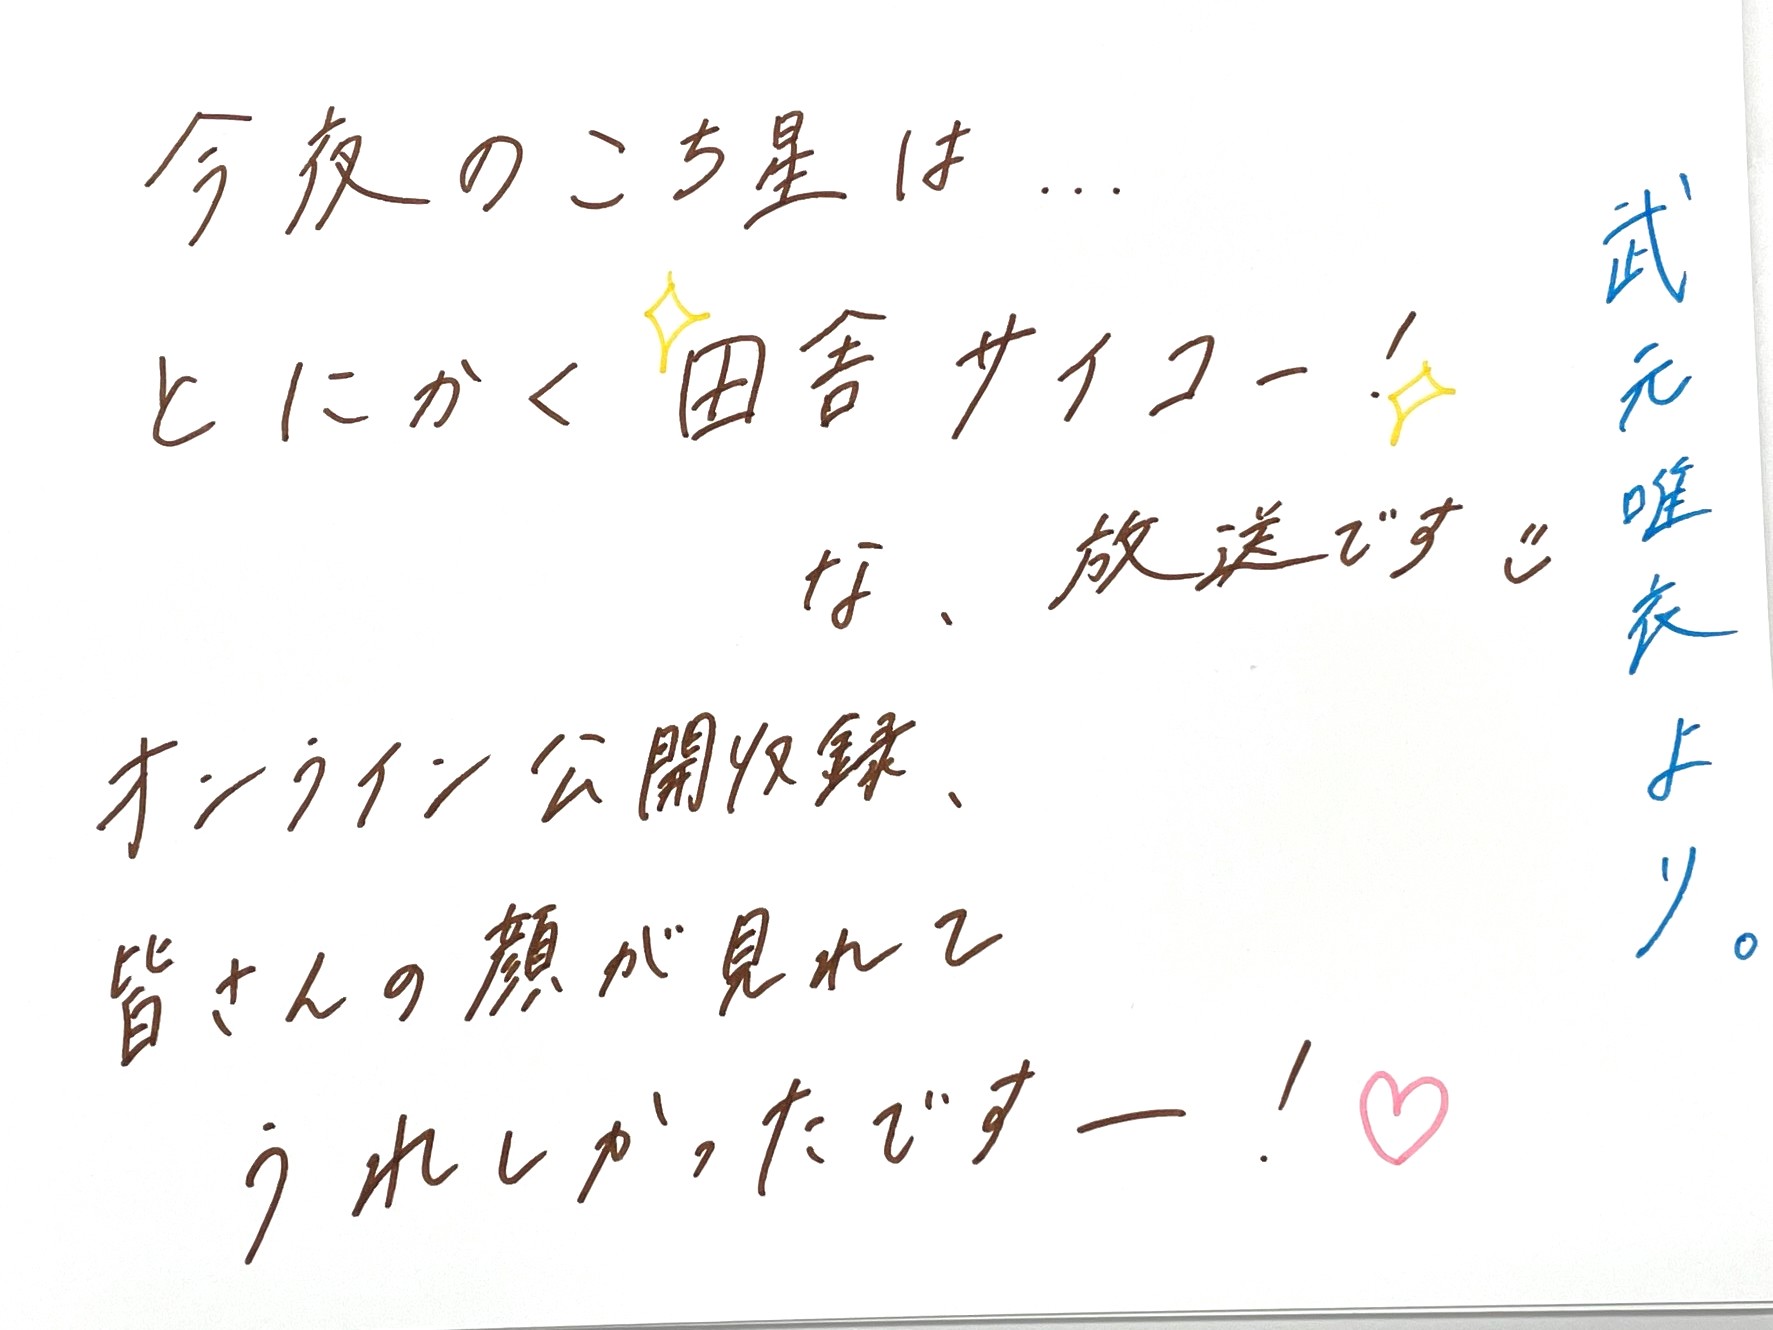 今夜のこち星は...
とにかく田舎サイコー!
な、放送です
オンライン公開収録、
皆さんの顔が見れて
うれしかったですー!
武元唯衣より。